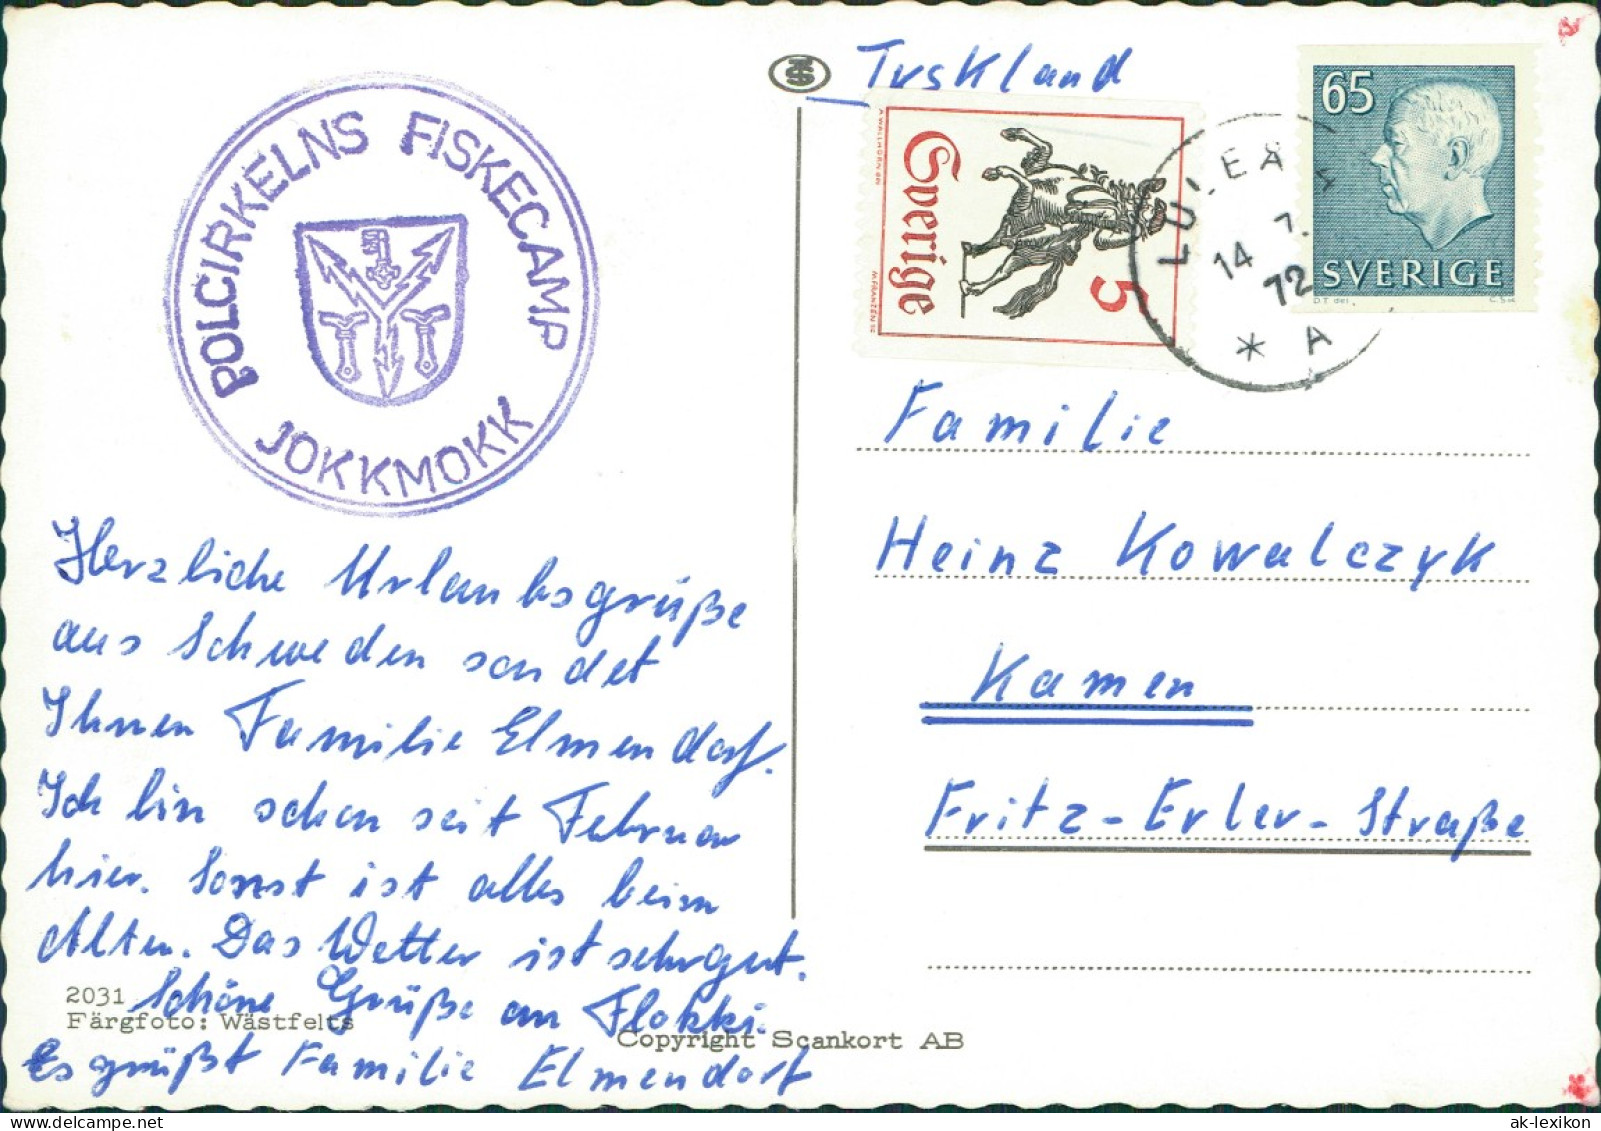 POLCIRKELNS FISKECAMP
JOKKMOKK
Tyskland
Sverige
5
A. WALLHORN DEL
M. FRANZÉN SC
65
SVERIGE
D T del.
C S sc
LULEÅ 1
14 7. 72
* A
Herzliche Urlaubsgrüße
aus Schweden sendet
Ihnen Familie Elmendorf.
Ich bin schon seit Februar
hier. Sonst ist alles beim
Alten. Das Wetter ist sehr gut.
Schöne Grüße an Flokki.
Es grüßt Familie Elmendorf
2031
Färgfoto: Wästfelts
Copyright Scankort AB
Familie
Heinz Kowalczyk
Kamen
Fritz-Erler-Straße
ak-lexikon